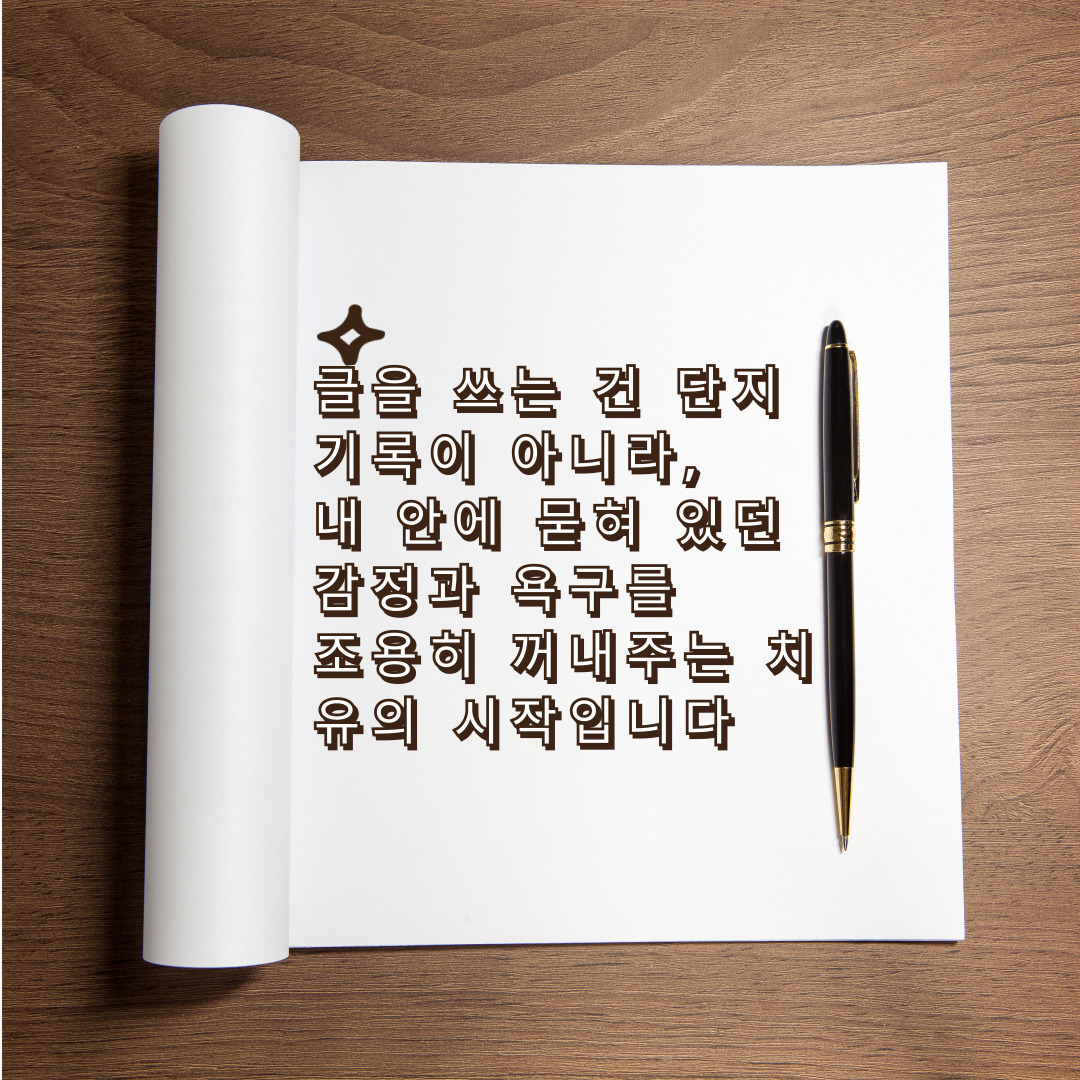 글을 쓰는 건 단지
기록이 아니라,
내 안에 묻혀 있던
감정과 욕구를
조용히 꺼내주는 치
유의 시작입니다